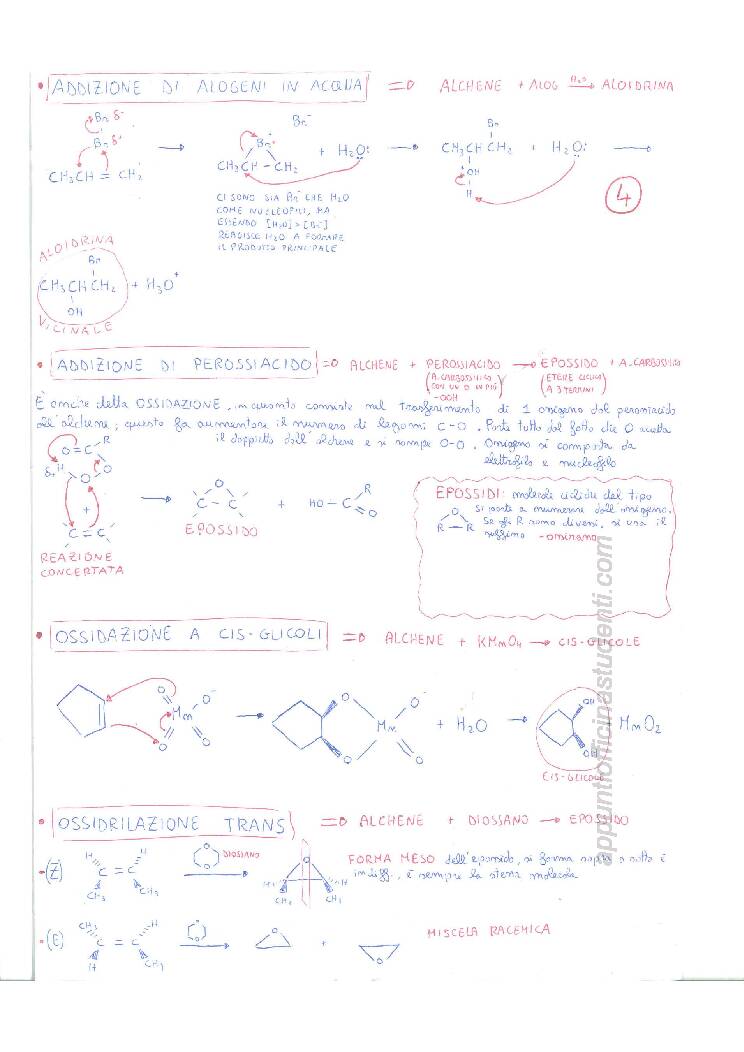 • ADDIZIONE DI ALOGENI IN ACQUA => ALCHENE + ALOG H₂O → ALOIDRINA
Br δ⁻
Br δ⁺
CH₃CH = CH₂
→
Br⁻
Br⁺
CH₃CH - CH₂
+ H₂O:
→
Br
CH₃CH CH₂
:OH
H
+ H₂O:
→
4
CI SONO SIA Br⁻ CHE H₂O
COME NUCLEOFILI, MA
ESSENDO [H₂O] > [Br⁻]
REAGISCE H₂O A FORMARE
IL PRODOTTO PRINCIPALE
ALOIDRINA
Br
CH₃CH CH₂ + H₃O⁺
OH
VICINALE
• ADDIZIONE DI PEROSSIACIDO => ALCHENE + PEROSSIACIDO → EPOSSIDO + A. CARBOSSILICO
(A. CARBOSSILICO CON UN O IN PIÙ -OOH)
(ETERE CICLICO A 3 TERMINI)
È anche detta OSSIDAZIONE, in quanto consiste nel trasferimento di 1 ossigeno dal perossiacido
all'alchene; questo fa aumentare il numero di legami C-O. Parte tutto dal fatto che O accetta
il doppietto dall'alchene e si rompe O-O. Ossigeno si comporta da
elettrofilo e nucleofilo
R
O=C
O
δ⁺ H
O
+
C = C
REAZIONE
CONCERTATA
→
O
C - C
EPOSSIDO
+ HO-C
R
O
EPOSSIDI: molecole cicliche del tipo
O
R - R
si parte a numerare dall'ossigeno.
Se gli R sono diversi, si usa il
suffisso -ossirano
• OSSIDAZIONE A CIS-GLICOLI => ALCHENE + KMnO₄ → CIS-GLICOLE
O
O⁻
Mn
O
O
→
O
O⁻
Mn
O
O
+ H₂O →
OH
OH
+ MnO₂
CIS-GLICOLE
• OSSIDRILAZIONE TRANS => ALCHENE + DIOSSANO → EPOSSIDO
-(Z)
H
H
C = C
CH₃
CH₃
DIOSSANO
→
O
H
H
CH₃
CH₃
FORMA MESO dell'epossido, si forma sopra o sotto è
indiff., è sempre la stessa molecola
-(E)
CH₃
H
C = C
H
CH₃
→
O
+
O
MISCELA RACEMICA
appuntiofficinastudenti.com